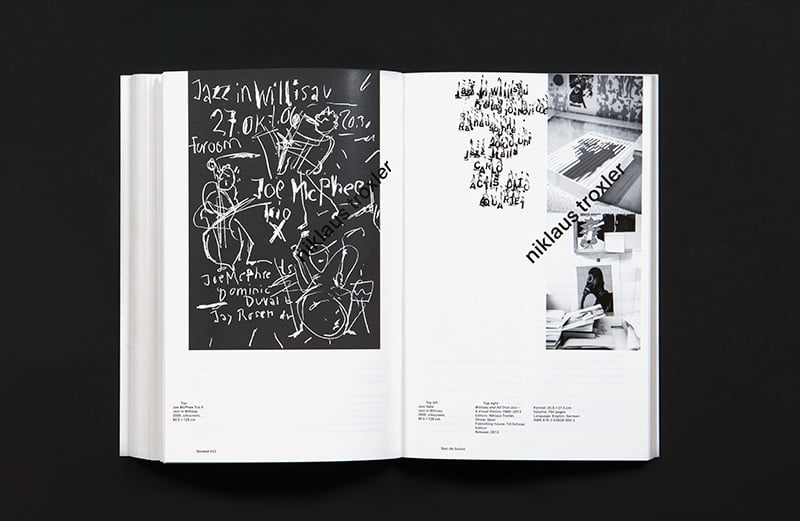 Jazz in Willisau
27.okt.06 20.30
foroom
Joe McPhee
Trio
X
Joe McPhee
Dominic
Duval
Jay Rosen dr
niklaus troxler
Top
Joe McPhee Trio X
Jazz in Willisau
2006, silkscreen,
90.5 × 128 cm
Slanted #23
jazz in willisau
CARLO
ACTIS DATO
QUARTET
niklaus troxler
Top left
Jazz Italia
Jazz in Willisau
2000, silkscreen,
90.5 × 128 cm
Top right
Willisau and All That Jazz –
A Visual History 1966–2013
Editors: Niklaus Troxler,
Olivier Senn
Publishing house: Till Schaap
Edition
Release: 2013
Format: 20.5 × 27.5 cm
Volume: 704 pages
Language: English, German
Tour de Suisse